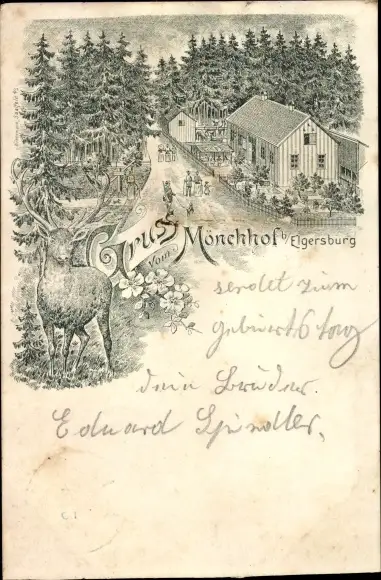 Gruss
vom Mönchhof b/ Elgersburg
sendet zum
geburtstag
dein Bruder.
Eduard Spindler.